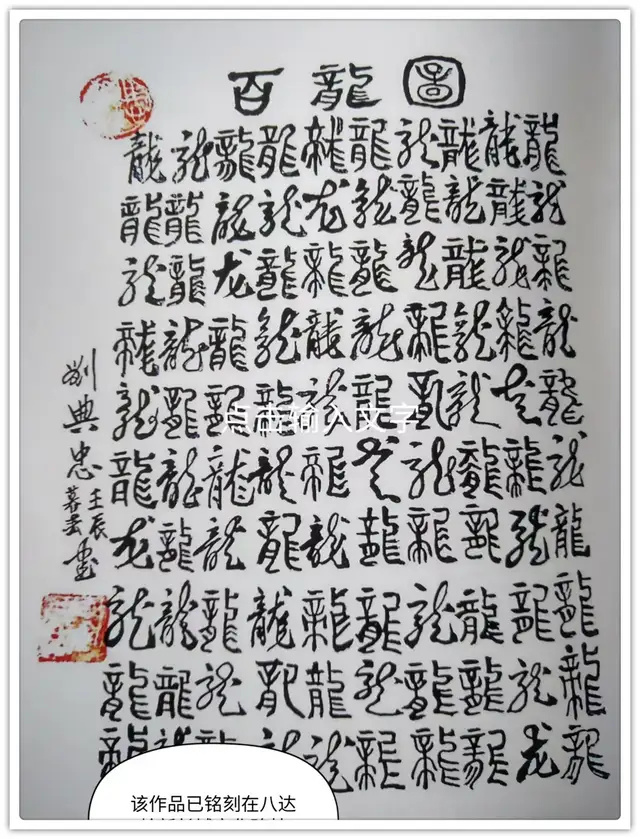 百龍圖
龍龍龍龍龍龍龍龍龍龍
龍龍龍龍龙龍龍龍龍龍
龍龍龙龍龍龍龍龍龍龍
龍龍龍龍龍龍龍龍龍龍
龍龍龍龍龍龍龍龍龍龍
点击输入文字
龍龍龍龍龍龍龍龍龍龍
龙龍龍龍龍龍龍龍龍龍
龍龍龍龍龍龍龍龍龍龍
龍龍龍龍龍龍龍龍龍龍
龍龍龍龍龍龍龍龍龙龍
劉典忠
壬辰
该作品已铭刻在八达